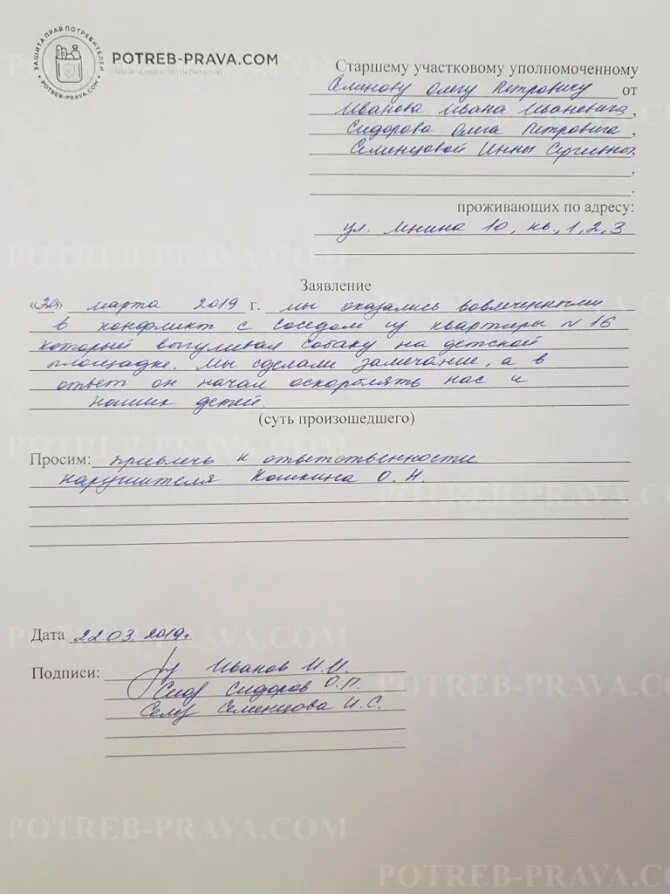 ЗАЩИТА ПРАВ ПОТРЕБИТЕЛЕЙ
POTREB-PRAVA.COM
POTREB-PRAVA.COM
Старшему участковому уполномоченному
Аминову Олегу Петровичу от
Иванова Ивана Ивановича,
Сидорова Олега Петровича,
Семенцовой Инны Сергеевны,
,
.
проживающих по адресу:
ул. Мнина 10, кв. 1, 2, 3
POTREB-PRAVA.COM
Заявление
«20» марта 2019 г. мы оказались вовлеченными
в конфликт с соседом из квартиры N 16
который выгуливал собаку на детской
площадке. Мы сделали замечание, а в
ответ он начал оскорблять нас и
наших детей.
(суть произошедшего)
POTREB-PRAVA.COM
Просим: привлечь к ответственности
нарушителя Кошкина О. Н.
POTREB-PRAVA.COM
Дата 22.03.2019г.
POTREB-PRAVA.COM
Подписи: Иванов И.И.
Сид Сидоров О.П.
Семенцова И.С.
POTREB-PRAVA.COM
POTREB-PRAVA.COM
POTREB-PRAVA.COM